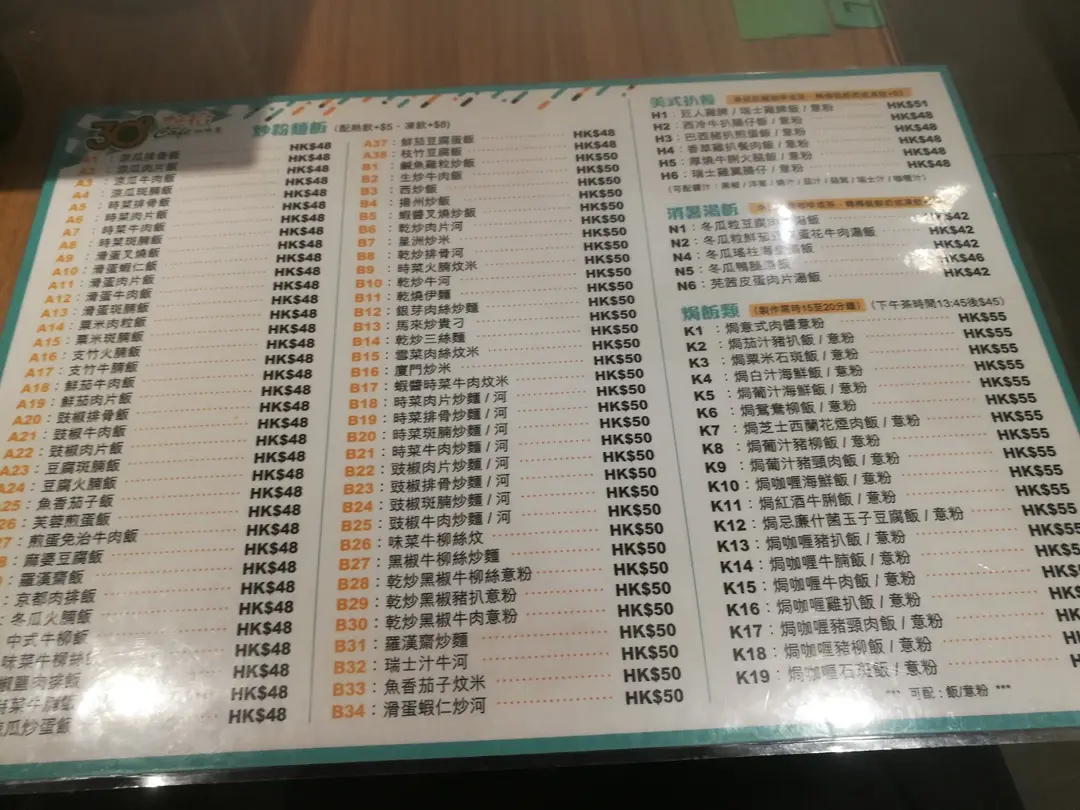 30° Café
炒粉麵飯 (配熱飲+$5、凍飲+$8)
A1：涼瓜排骨飯 HK$48
涼瓜肉片飯 HK$48
A3：涼瓜牛肉飯 HK$48
A4：涼瓜斑腩飯 HK$48
A5：時菜排骨飯 HK$48
A6：時菜肉片飯 HK$48
A7：時菜牛肉飯 HK$48
A8：時菜斑腩飯 HK$48
A9：滑蛋叉燒飯 HK$48
A10：滑蛋蝦仁飯 HK$48
A11：滑蛋肉片飯 HK$48
A12：滑蛋牛肉飯 HK$48
A13：滑蛋斑腩飯 HK$48
A14：粟米肉粒飯 HK$48
A15：粟米斑腩飯 HK$48
A16：支竹火腩飯 HK$48
A17：支竹牛腩飯 HK$48
A18：鮮茄牛肉飯 HK$48
A19：鮮茄肉片飯 HK$48
A20：豉椒排骨飯 HK$48
A21：豉椒牛肉飯 HK$48
A22：豉椒肉片飯 HK$48
A23：豆腐斑腩飯 HK$48
A24：豆腐火腩飯 HK$48
25：魚香茄子飯 HK$48
26：芙蓉煎蛋飯 HK$48
27：煎蛋免治牛肉飯 HK$48
8：麻婆豆腐飯 HK$48
：羅漢齋飯 HK$48
：京都肉排飯 HK$48
：冬瓜火腩飯 HK$48
中式牛柳飯 HK$48
味菜牛柳絲 HK$48
椒鹽肉排飯 HK$48
時菜牛 HK$48
涼瓜炒蛋飯 HK$48
A37：鮮茄豆腐蛋飯 HK$48
A38：枝竹豆腐飯 HK$48
B1：鹹魚雞粒炒飯 HK$50
B2：生炒牛肉飯 HK$50
B3：西炒飯 HK$50
B4：揚州炒飯 HK$50
B5：蝦醬叉燒炒飯 HK$50
B6：乾炒肉片河 HK$50
B7：星洲炒米 HK$50
B8：乾炒排骨河 HK$50
B9：時菜火腩炆米 HK$50
B10：乾炒牛河 HK$50
B11：乾燒伊麵 HK$50
B12：銀芽肉絲炒麵 HK$50
B13：馬來炒貴刁 HK$50
B14：乾炒三絲麵 HK$50
B15：雪菜肉絲炆米 HK$50
B16：廈門炒米 HK$50
B17：蝦醬時菜牛肉炆米 HK$50
B18：時菜肉片炒麵 / 河 HK$50
B19：時菜排骨炒麵 / 河 HK$50
B20：時菜斑腩炒麵 / 河 HK$50
B21：時菜牛肉炒麵 / 河 HK$50
B22：豉椒肉片炒麵 / 河 HK$50
B23：豉椒排骨炒麵 / 河 HK$50
B24：豉椒斑腩炒麵 / 河 HK$50
B25：豉椒牛肉炒麵 / 河 HK$50
B26：味菜牛柳絲炆 HK$50
B27：黑椒牛柳絲炒麵 HK$50
B28：乾炒黑椒牛柳絲意粉 HK$50
B29：乾炒黑椒豬扒意粉 HK$50
B30：乾炒黑椒牛肉意粉 HK$50
B31：羅漢齋炒麵 HK$50
B32：瑞士汁牛河 HK$50
B33：魚香茄子炆米 HK$50
B34：滑蛋蝦仁炒河 HK$50
美式扒餐
H1：巨人雞脾 / 瑞士雞脾飯 / 意粉 HK$51
H2：西冷牛扒腸仔飯 / 意粉 HK$48
H3：巴西豬扒煎蛋飯 / 意粉 HK$48
H4：香草雞扒餐肉飯 / 意粉 HK$48
H5：厚燒牛脷火腿飯 / 意粉 HK$48
H6：瑞士雞翼腸仔 / 意粉 HK$48
(可配醬汁：黑椒 / 洋蔥 / 燒汁 / 茄汁 / 蒜茸 / 瑞士汁 / 咖喱汁)
消暑湯飯
N1：冬瓜粒豆腐肉 湯飯 HK$42
N2：冬瓜粒鮮茄 蛋花牛肉湯飯 HK$42
N4：冬瓜瑤柱海 飯 HK$42
N5：冬瓜鴨腿湯飯 HK$46
N6：芫茜皮蛋肉片湯飯 HK$42
焗飯類 (製作需時15至20分鐘) (下午茶時間13:45後$45)
K1：焗意式肉醬意粉 HK$55
K2：焗茄汁豬扒飯 / 意粉 HK$55
K3：焗粟米石斑飯 / 意粉 HK$55
K4：焗白汁海鮮飯 / 意粉 HK$55
K5：焗葡汁海鮮飯 / 意粉 HK$55
K6：焗鴛鴦柳飯 / 意粉 HK$55
K7：焗芝士西蘭花煙肉飯 / 意粉 HK$55
K8：焗葡汁豬柳飯 / 意粉 HK$55
K9：焗葡汁豬頸肉飯 / 意粉 HK$55
K10：焗咖喱海鮮飯 / 意粉 HK$55
K11：焗紅酒牛脷飯 / 意粉 HK$55
K12：焗忌廉什菌玉子豆腐飯 / 意粉 HK$55
K13：焗咖喱豬扒飯 / 意粉 HK$55
K14：焗咖喱牛腩飯 / 意粉
K15：焗咖喱牛肉飯 / 意粉
K16：焗咖喱雞扒飯 / 意粉
K17：焗咖喱豬頸肉飯 / 意粉
K18：焗咖喱豬柳飯 / 意粉
K19：焗咖喱石斑飯 / 意粉
*** 可配：飯/意粉 ***